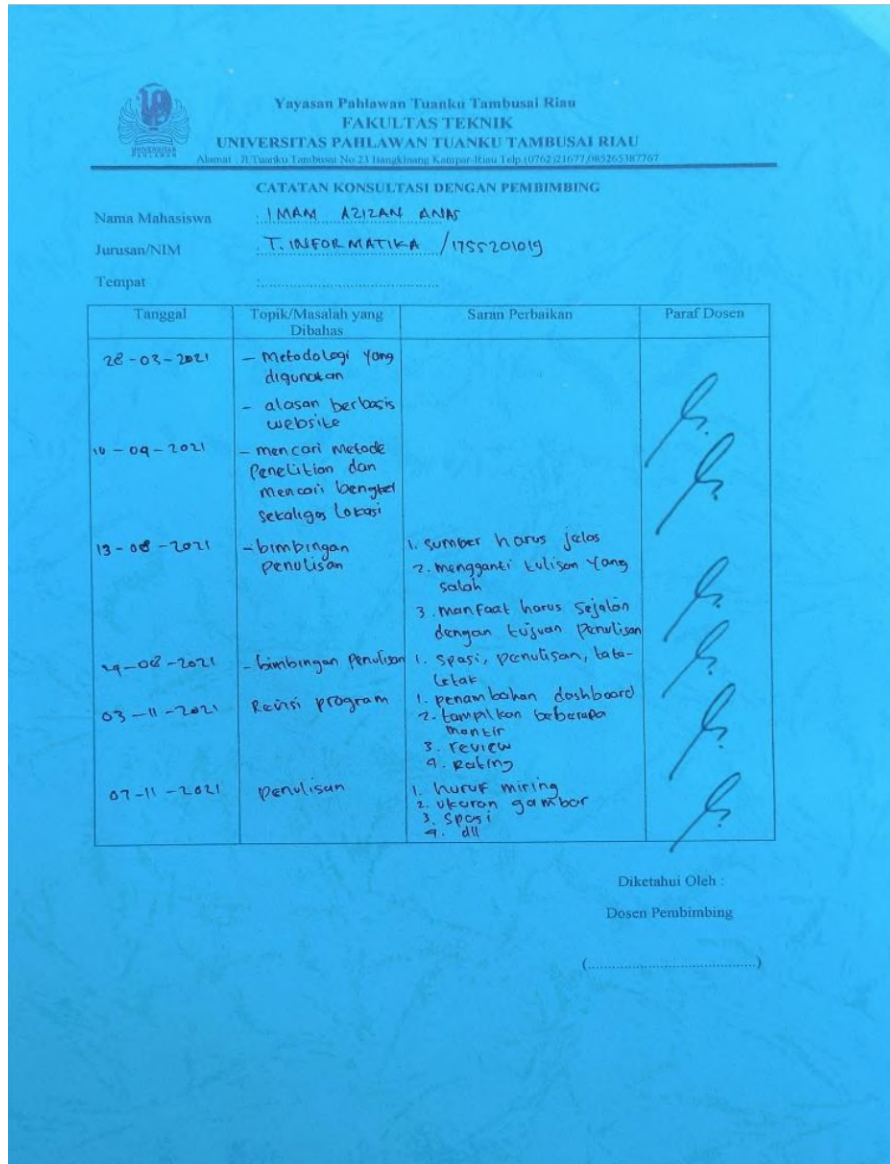 UNIVERSITAS
PAHLAWAN
Yayasan Pahlawan Tuanku Tambusai Riau
FAKULTAS TEKNIK
UNIVERSITAS PAHLAWAN TUANKU TAMBUSAI RIAU
Alamat : Jl.Tuanku Tambusai No.23 Bangkinang Kampar-Riau Telp.(0762)21677,085265387767
CATATAN KONSULTASI DENGAN PEMBIMBING
Nama Mahasiswa : IMAM AZIZAN ANAS
Jurusan/NIM : T. INFORMATIKA / 1755201019
Tempat :
Tanggal Topik/Masalah yang Dibahas Saran Perbaikan Paraf Dosen
28-03-2021 - Metodologi yang
digunakan
- alasan berbasis
website
10-09-2021 - mencari metode
Penelitian dan
mencari bengkel
sekaligos Lokasi
13-08-2021 - bimbingan
penulisan
1. sumber harus jelas
2. mengganti tulisan yang
salah
3. manfaat harus sejalan
dengan tujuan Penulisan
29-08-2021 - bimbingan Penulisan 1. spasi, penulisan, tata-
letak
03-11-2021 Revisi program 1. penambahan dashboard
2. tampilkan beberapa
montir
3. review
4. Rating
07-11-2021 penulisan 1. huruf miring
2. ukuran gambar
3. spasi
4. dll
Diketahui Oleh :
Dosen Pembimbing
(..........................................)